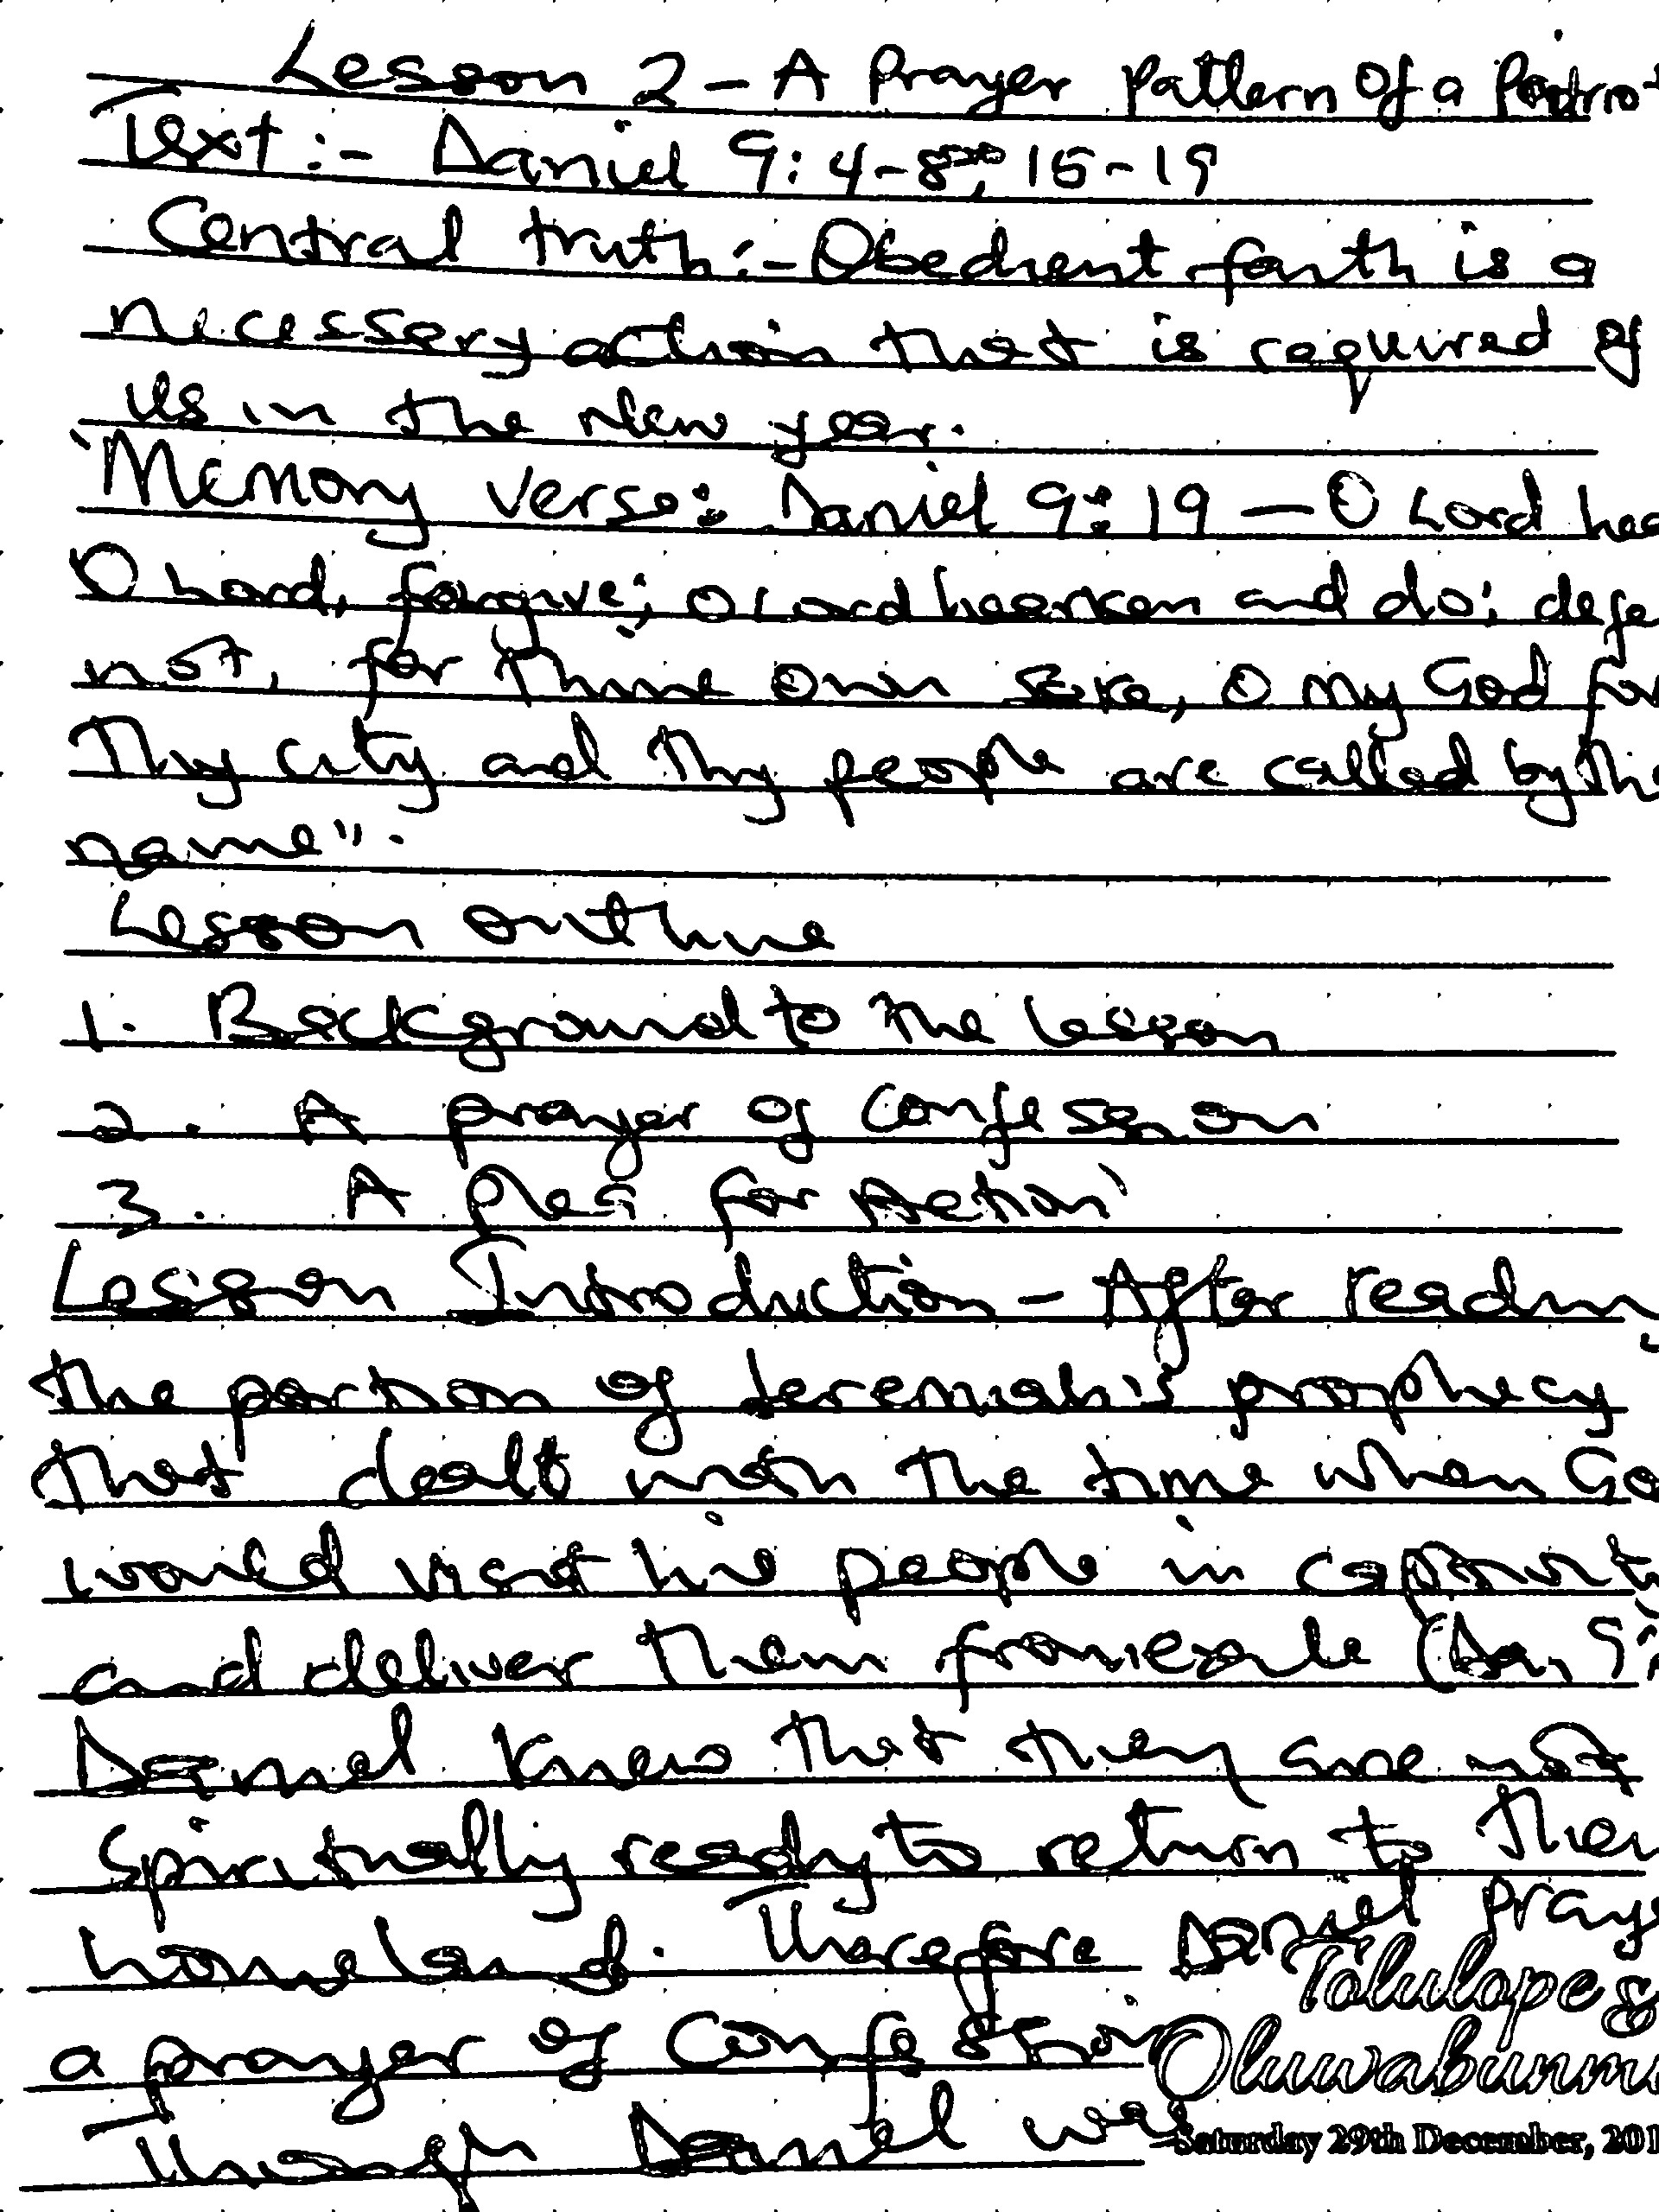 Lesson 2 - A Prayer Pattern Of a
Text :- Daniel 9: 4-8, 15-19
Central truth :- Obedient faith is a
necessary action that is required of
us in the New year.
"Memory verse: Daniel 9: 19 — O Lord hea
O Lord, forgive; O Lord hearken and do; defe
not, for thine own sake, O my God for
Thy city and thy people are called by
name".
Lesson outline
1. Background to the lesson
2. A prayer of Confession
3. A plea for Action
Lesson Introduction - After readin
the portion of Jeremiah's prophecy
that dealt with the time when Go
would visit his people in captivit
and deliver them from exile (Da, 9:
Daniel knew that they are not
spiritually ready to return to their
homeland. Therefore Daniel praye
a prayer of Confession
Though Daniel was
Tolulope &
Oluwabunmi
Saturday 29th December, 201